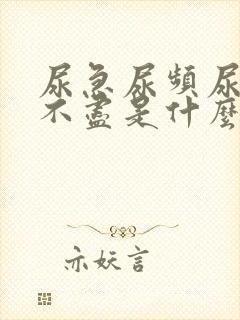 尿急尿頻尿
不盡是什麼
亦妖言